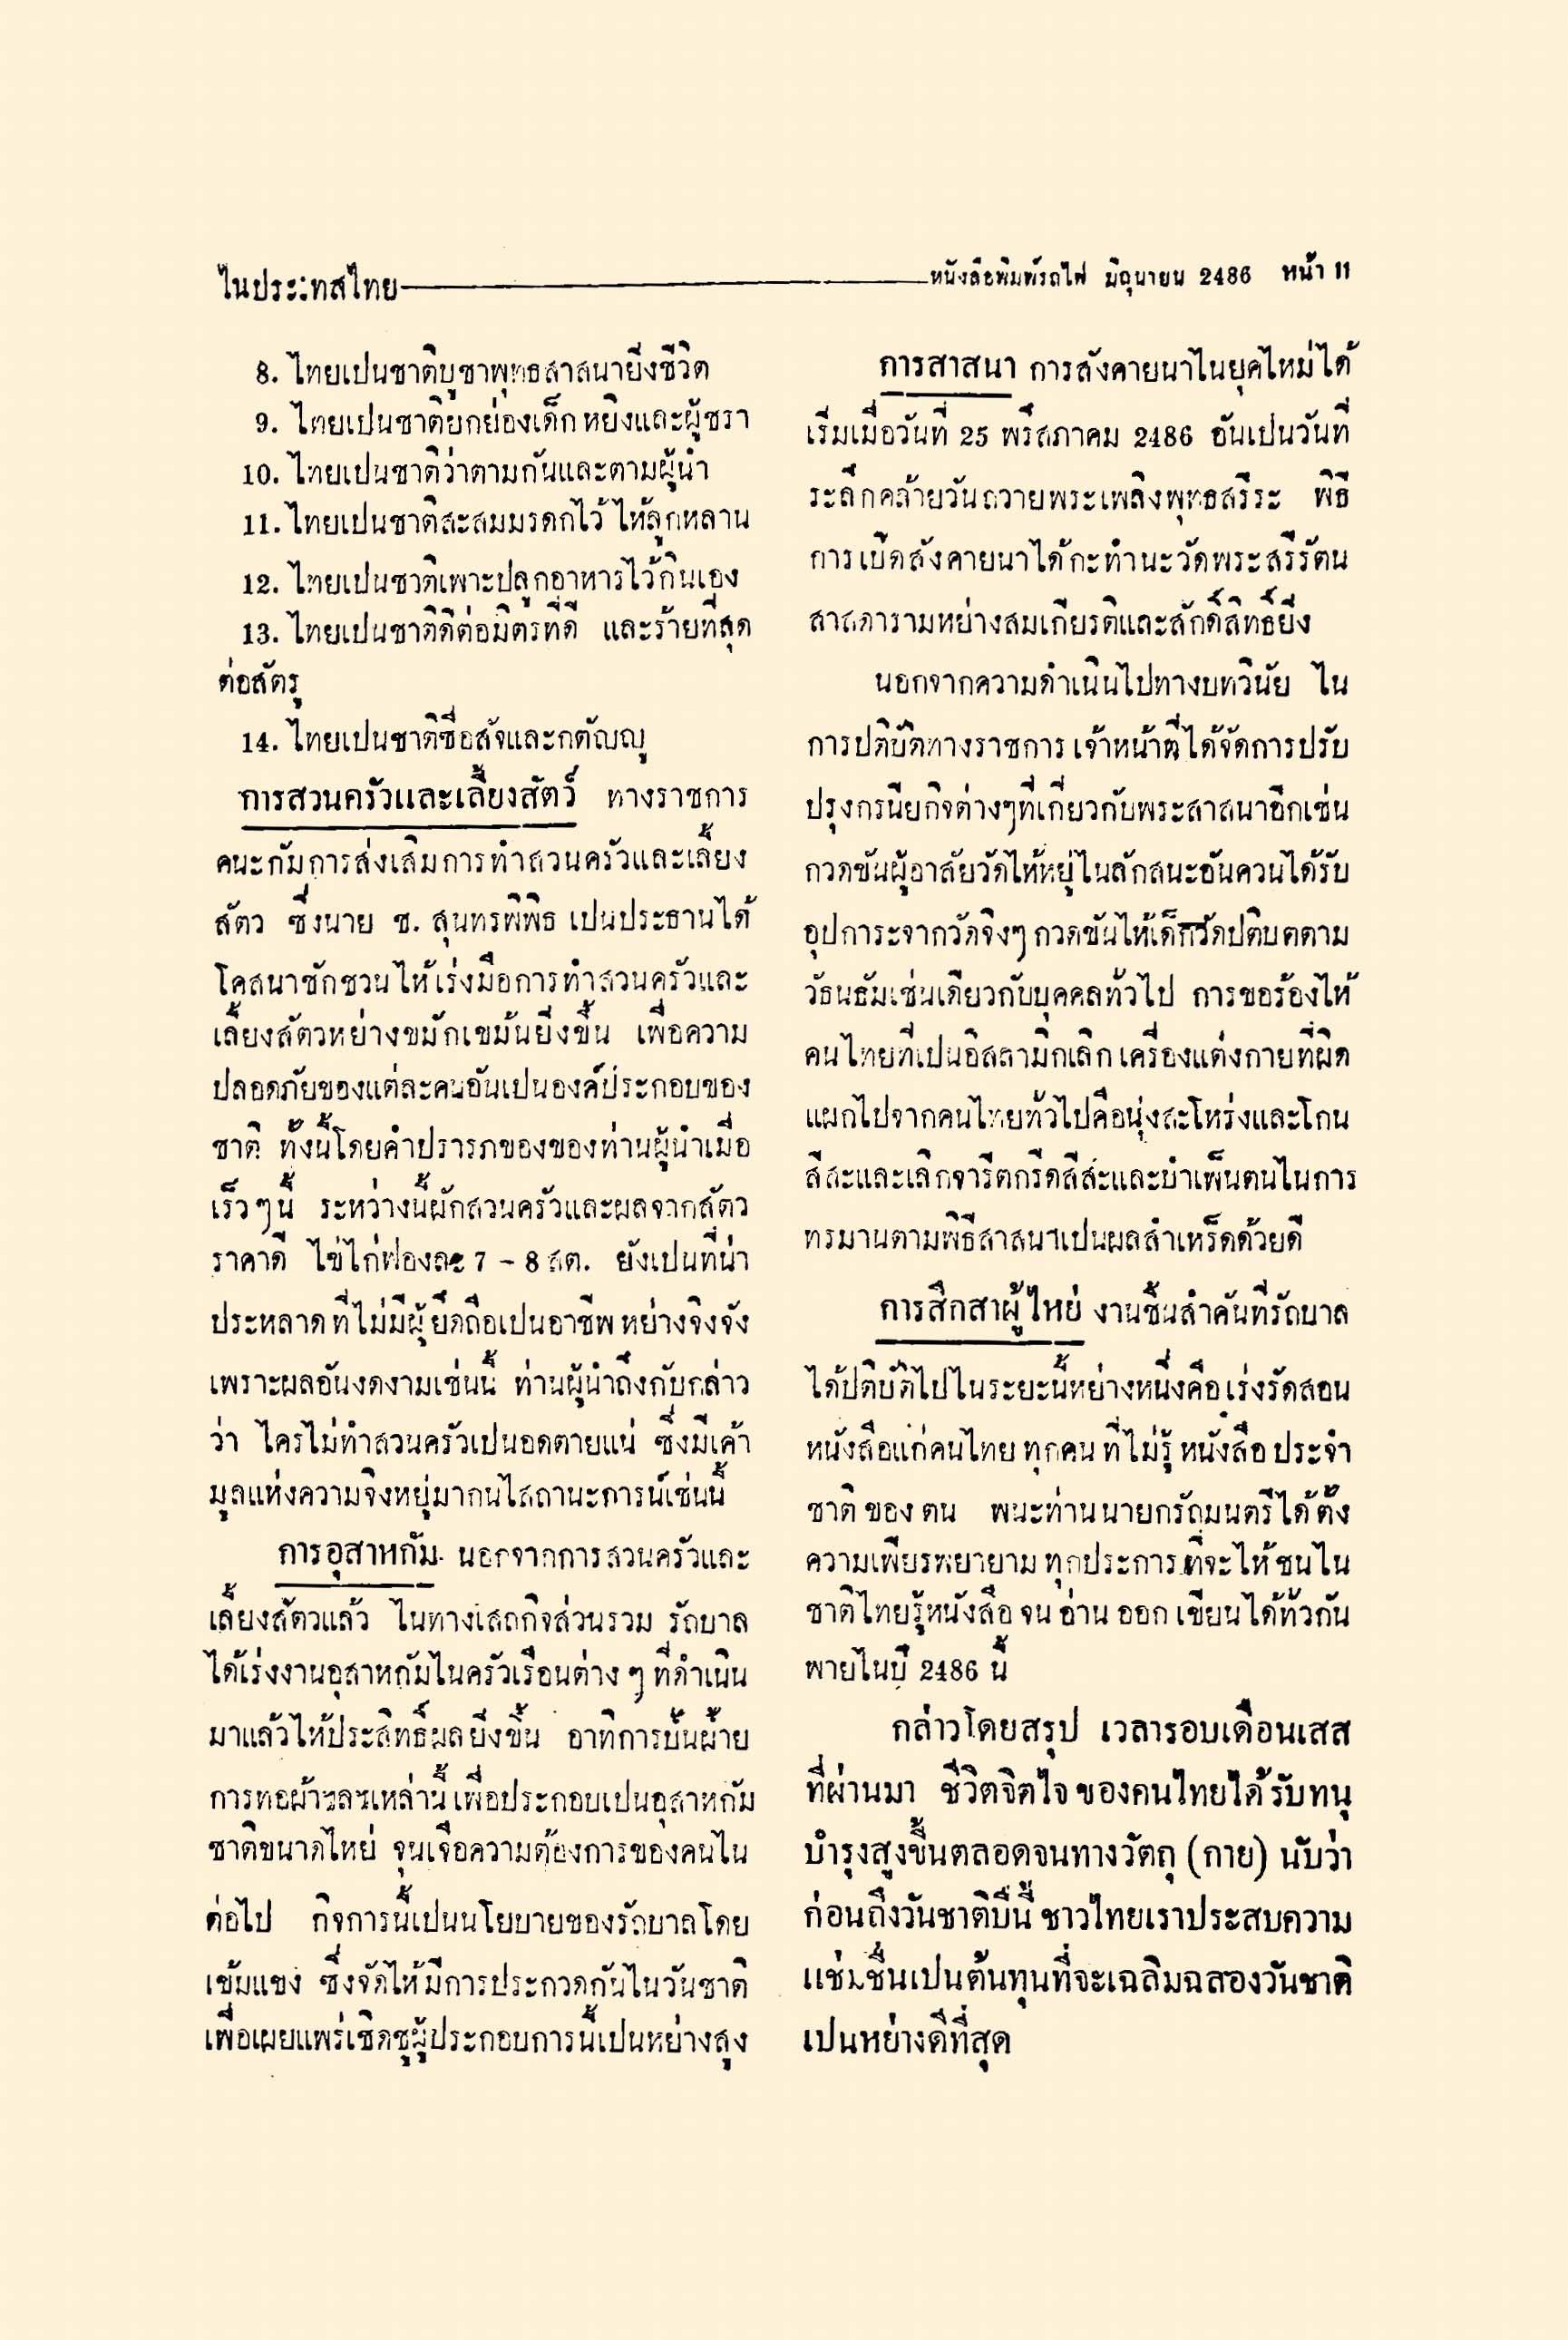 ไนประเทสไทย
หนังสือพิมพ์รถไฟ มิถุนายน 2486 หน้า 11
8. ไทยเปนชาติบูชาพุทธสาสนายิ่งชีวิต
9. ไทยเปนชาติยกย่องเด็ก หยิงและผู้ชรา
10. ไทยเปนชาติว่าตามกันและตามผู้นำ
11. ไทยเปนชาติสะสมมรดกไว้ ไห้ลูกหลาน
12. ไทยเปนชาติเพาะปลูกอาหารไว้กินเอง
13. ไทยเปนชาติดีต่อมิตรที่ดี และร้ายที่สุด
ต่อสัตรู
14. ไทยเปนชาติซื่อสัจและกตัญญู
การสวนครัวและเลี้ยงสัตว์ ทางราชการ
คนะกัมการส่งเสิมการทำสวนครัวและเลี้ยง
สัตว ซึ่งนาย ช. สุนทรพิพิธ เปนประธานได้
โคสนาชักชวนไห้เร่งมือการทำสวนครัวและ
เลี้ยงสัตวหย่างขมักเขม้นยิ่งขึ้น เพื่อความ
ปลอดภัยของแต่ละคนอันเปนองค์ประกอบของ
ชาติ ทั้งนี้โดยคำปรารภของของท่านผู้นำเมื่อ
เร็วๆนี้ ระหว่างนี้ผักสวนครัวและผลจากสัตว
ราคาดี ไข่ไก่ฟองละ 7 - 8 สต. ยังเปนที่น่า
ประหลาดที่ไม่มีผู้ยึดถือเปนอาชีพหย่างจิงจัง
เพราะผลอันงดงามเช่นนี้ ท่านผู้นำถึงกับกล่าว
ว่า ไครไม่ทำสวนครัวเปนอดตายแน่ ซึ่งมีเค้า
มูลแห่งความจิงหยู่มากนไสถานะการน์เช่นนี้
การอุสาหกัม นอกจากการสวนครัวและ
เลี้ยงสัตวแล้ว ไนทางเสถกิจส่วนรวม รัถบาล
ได้เร่งงานอุสาหกัมไนครัวเรือนต่าง ๆ ที่ดำเนิน
มาแล้วไห้ประสิทธิ์ผลยิ่งขึ้น อาทิการปั่นฝ้าย
การทอผ้าฯลฯเหล่านี้ เพื่อประกอบเปนอุสาหกัม
ชาติขนาดไหย่ จุนเจือความต้องการของคนไน
ต่อไป กิจการนี้เปนนโยบายของรัถบาลโดย
เข้มแขง ซึ่งจัดไห้มีการประกวดกันไนวันชาติ
เพื่อเผยแพร่เชิดชูผู้ประกอบการนี้เปนหย่างสูง
การสาสนา การสังคายนาไนยุคไหม่ได้
เริ่มเมื่อวันที่ 25 พรึสภาคม 2486 อันเปนวันที่
ระลึกคล้ายวันถวายพระเพลิงพุทธสรีระ พิธี
การเปิดสังคายนาได้กะทำนะวัดพระสรีรัตน
สาสดารามหย่างสมเกียรติและสักดิ์สิทธิ์ยิ่ง
นอกจากความดำเนินไปทางบทวินัย ไน
การปติบัติทางราชการ เจ้าหน้าที่ได้จัดการปรับ
ปรุงกรนียกิจต่างๆที่เกี่ยวกับพระสาสนาอีกเช่น
กวดขันผู้อาสัยวัดไห้หยู่ไนลักสนะอันควนได้รับ
อุปการะจากวัดจิงๆ กวดขันไห้เด็กวัดปติบตตาม
วัธนธัมเช่นเดียวกับบุคคลทั่วไป การขอร้องไห้
คนไทยที่เปนอิสลามิกเลิกเครื่องแต่งกายที่ผิด
แผกไปจากคนไทยทั่วไปคือนุ่งสะโหร่งและโกน
สีสะและเลิกจารีตกรีดสีสะและบำเพ็นตนไนการ
ทรมานตามพิธีสาสนาเปนผลสำเหร็ดด้วยดี
การสึกสาผู้ไหย่ งานชิ้นสำคันที่รัถบาล
ได้ปติบัติไปไนระยะนี้หย่างหนึ่งคือเร่งรัดสอน
หนังสือแก่คนไทย ทุกคน ที่ไม่รู้ หนังสือ ประจำ
ชาติ ของ ตน พนะท่านนายกรัถมนตรีได้ตั้ง
ความเพียรพยายาม ทุกประการ ที่จะไห้ ชนไน
ชาติไทยรู้หนังสือ จน อ่าน ออก เขียนได้ทั่วกัน
พายไนปี 2486 นี้
กล่าวโดยสรุป เวลารอบเดือนเสส
ที่ผ่านมา ชีวิตจิตไจ ของคนไทยได้รับทนุ
บำรุงสูงขึ้นตลอดจนทางวัตถุ (กาย) นับว่า
ก่อนถึงวันชาติปีนี้ ชาวไทยเราประสบความ
แช่มชื่นเปนต้นทุนที่จะเฉลิมฉลองวันชาติ
เปนหย่างดีที่สุด